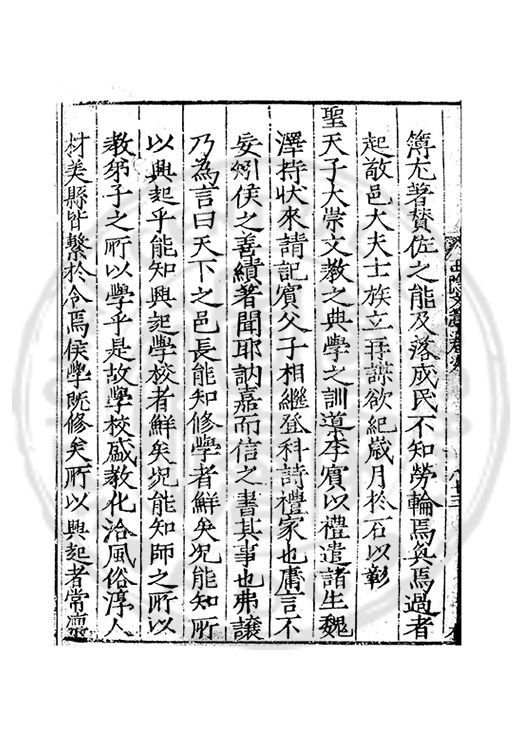 簿尤著贊佐之能及落成民不知勞輪焉奐焉過者
起敬邑大夫士族立再謀欲紀歲月於石以彰
聖天子大崇文教之典學之訓導李賓以禮遣諸生魏
澤持狀來請記賓父子相繼登科詩禮家也庸言不
妄矧侯之善績著聞耶訥嘉而信之書其事也弗讓
乃為言曰天下之邑長能知修學者鮮矣況能知所
以興起乎能知興起學校者鮮矣況能知師之所以
教弟子之所以學乎是故學校盛教化洽風俗淳人
材美縣皆繫於令焉侯學既修矣所以興起者常